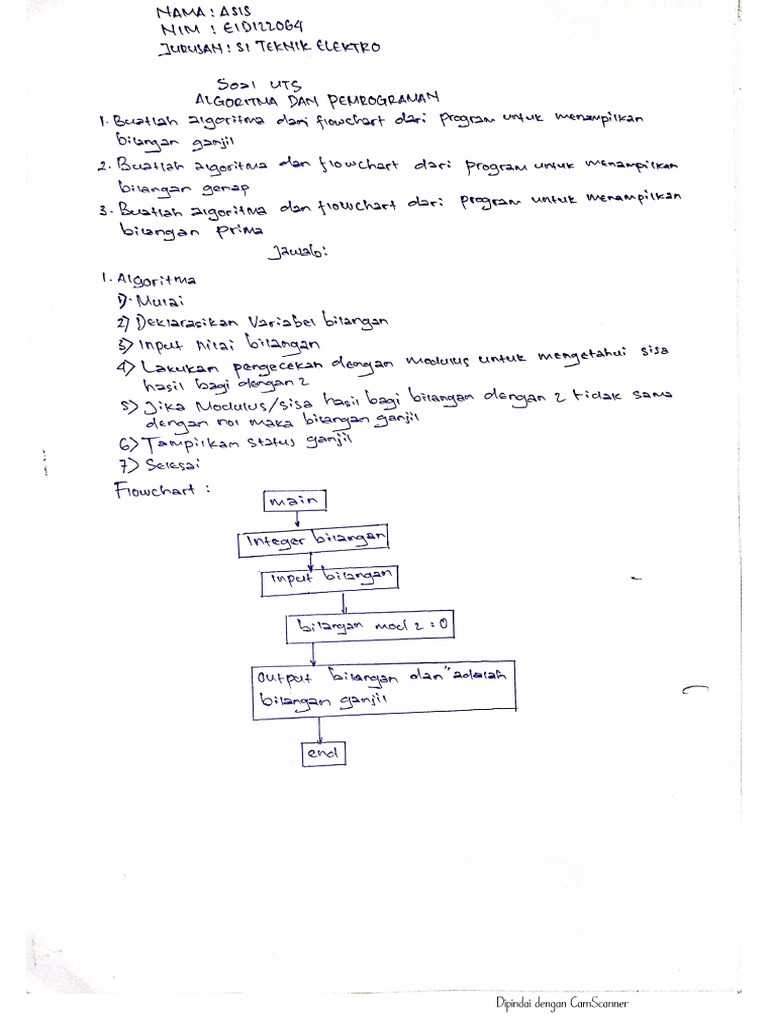 NAMA : ASIS
NIM : E1D122064
JURUSAN : S1 TEKNIK ELEKTRO
Soal UTS
ALGORITMA DAN PEMROGRAMAN
1. Buatlah algoritma dan flowchart dari program untuk menampilkan
bilangan ganjil
2. Buatlah algoritma dan flowchart dari program untuk menampilkan
bilangan genap
3. Buatlah algoritma dan flowchart dari program untuk menampilkan
bilangan prima
Jawab:
1. Algoritma
1) Mulai
2) Deklarasikan Variabel bilangan
3) Input Nilai bilangan
4) Lakukan pengecekan dengan modulus untuk mengetahui sisa
hasil bagi dengan 2
5) Jika Modulus/sisa hasil bagi bilangan dengan 2 tidak sama
dengan nol maka bilangan ganjil
6) Tampilkan status ganjil
7) Selesai
Flowchart :
main
Integer bilangan
Input bilangan
bilangan mod 2 = 0
Output bilangan dan "adalah
bilangan ganjil
end
Dipindai dengan CamScanner